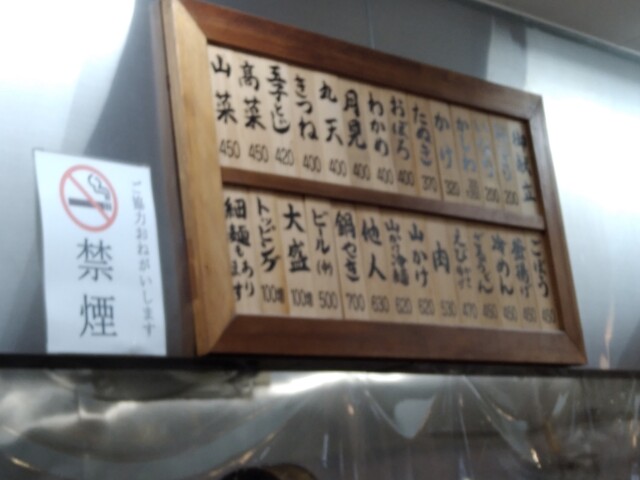 御献立
200
200
かしわ
かけ
320
たぬき
370
おぼろ
400
わかめ
400
月見
400
丸天
400
きつね
400
玉子とじ
420
高菜
450
山菜
450
ごぼう
450
釜揚げ
450
冷めん
450
ごまうどん
450
えび天
470
肉
530
山かけ
620
山かけ冷麺
620
他人
630
鍋やき
700
ビール(中)
500
大盛
100増
トッピング
100増
細麺もあります
ご協力おねがいします
禁煙